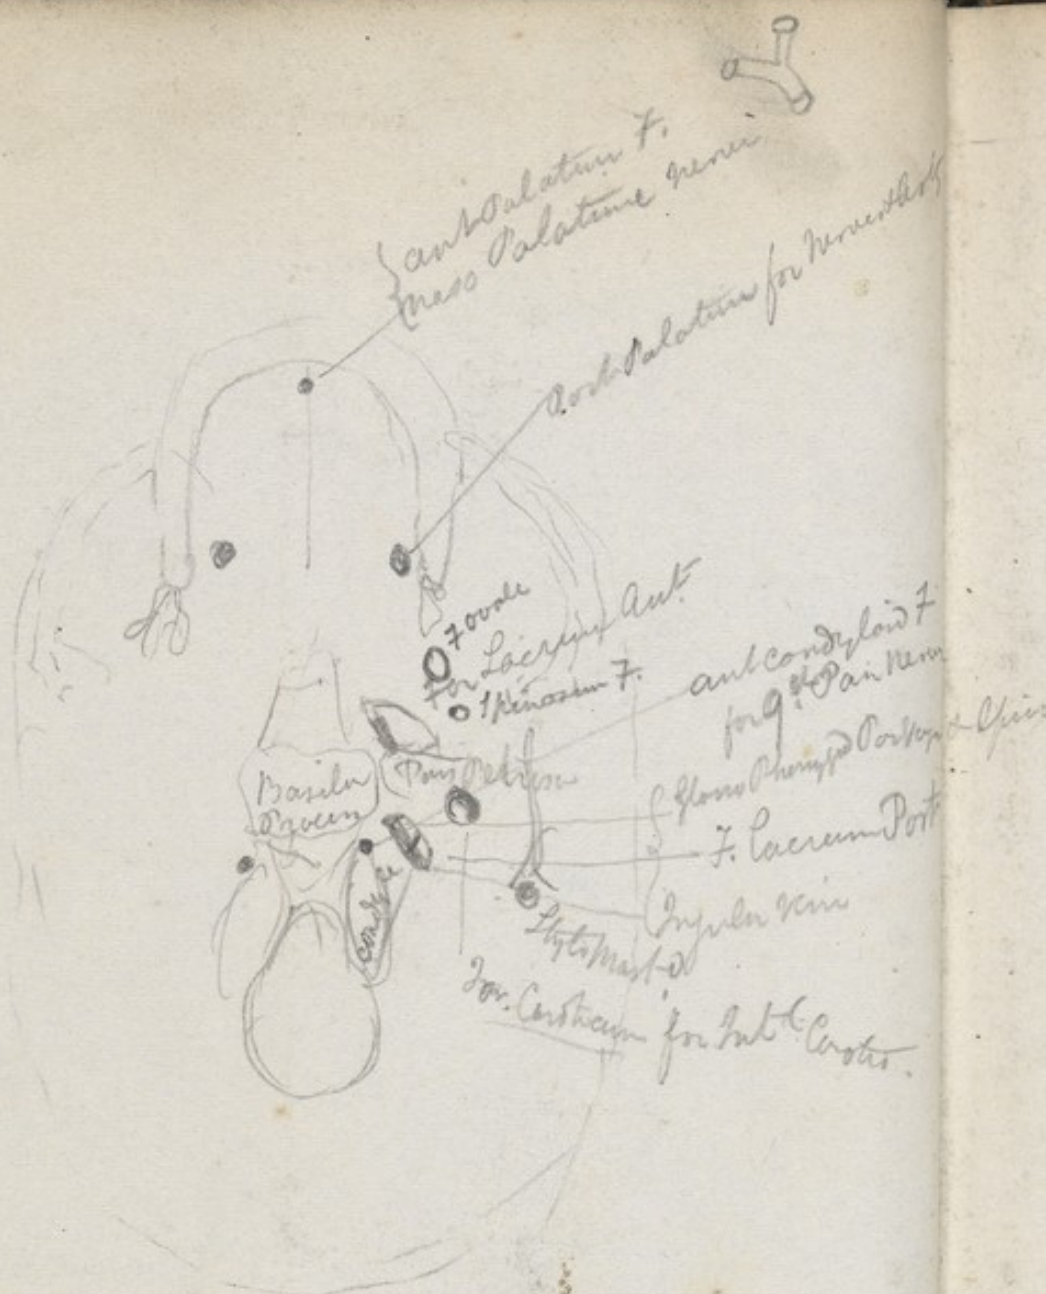 ant Palatine F.
naso Palatine nerve
Post Palatine for Nerve & Art
F ovale
For Lacrum Ant.
Spinosum F.
ant condyloid F
for 9th Pair Nerve
Basilar
Process
Pars Petrosa
Glosso Pharyngl Par vag &
F. Lacrum Post
condyle
Jugular Vein
Stylo Mastd
For. Caroticum for Intl Carotid.